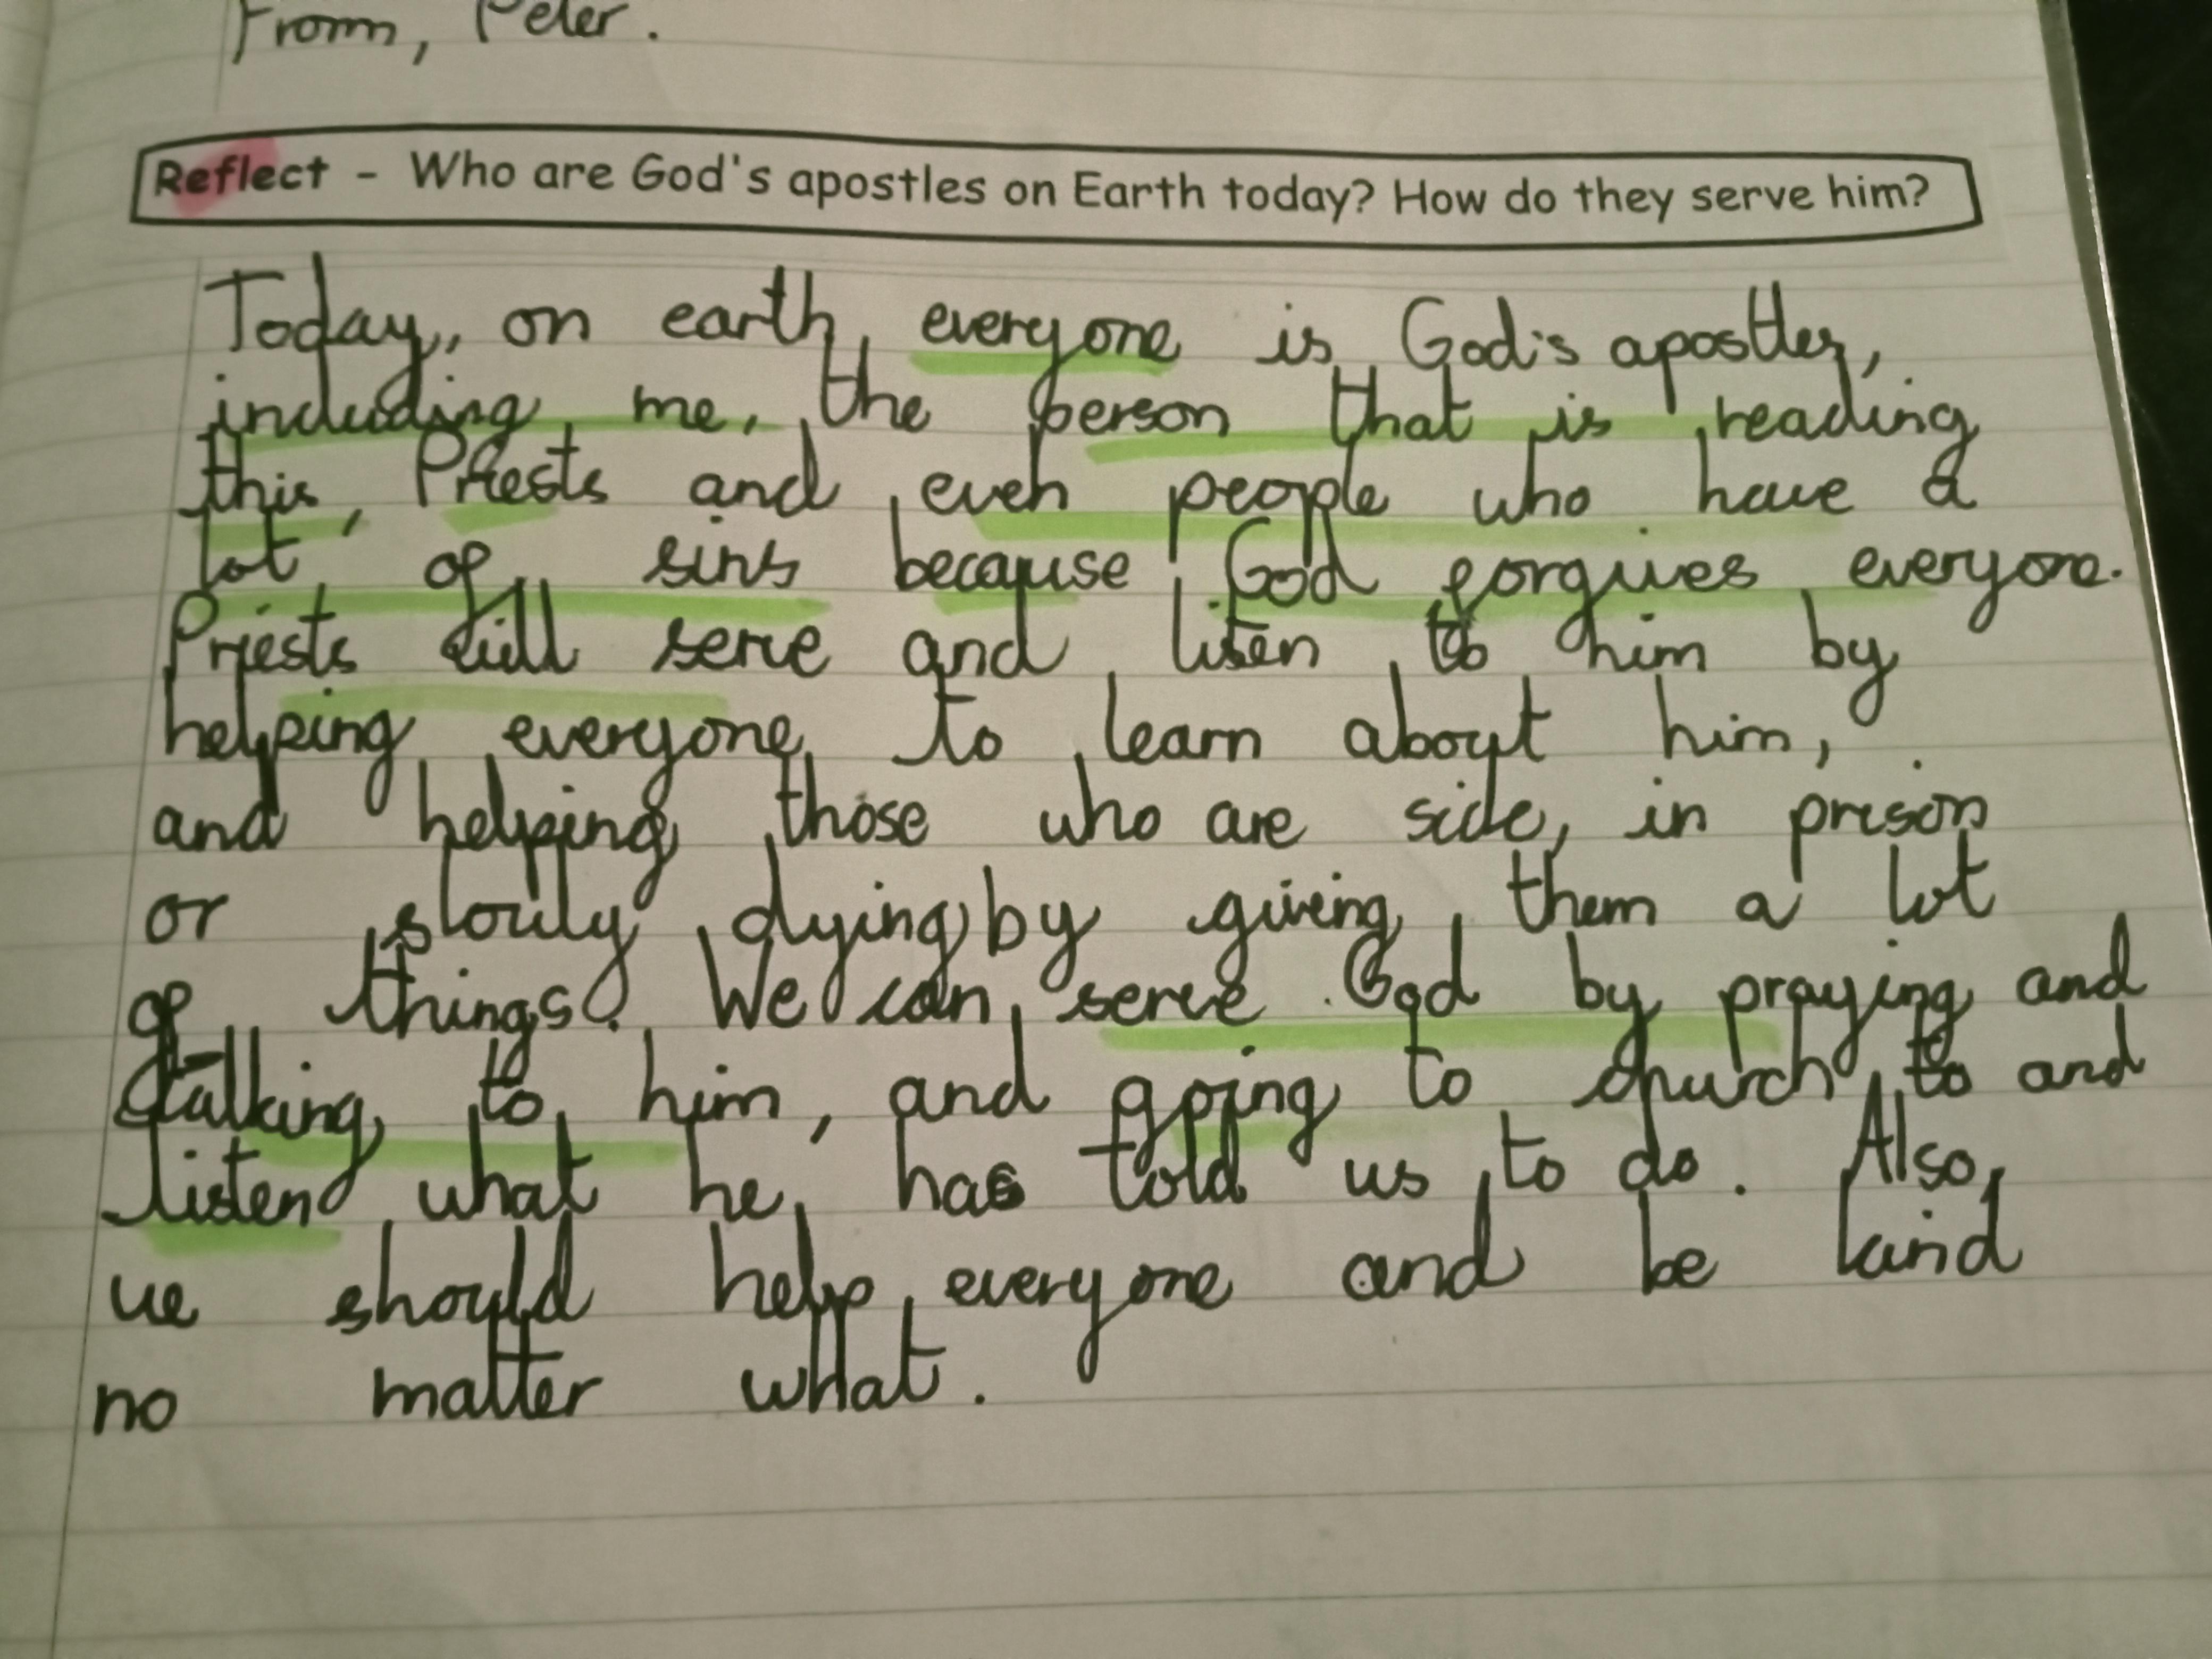 From, Peter.
Reflect - Who are God's apostles on Earth today? How do they serve him?
Today, on earth, everyone is God's apostles,
including me, the person that is reading
this, Priests and even people who have a
lot of sins because God forgives everyone.
Priests still serve and listen to him by
helping everyone to learn about him,
and helping those who are sick, in prison
or slowly dying by giving them a lot
of things. We can serve God by praying and
talking to him, and going to church to and
listen what he has told us to do. Also,
we should help everyone and be kind
no matter what.